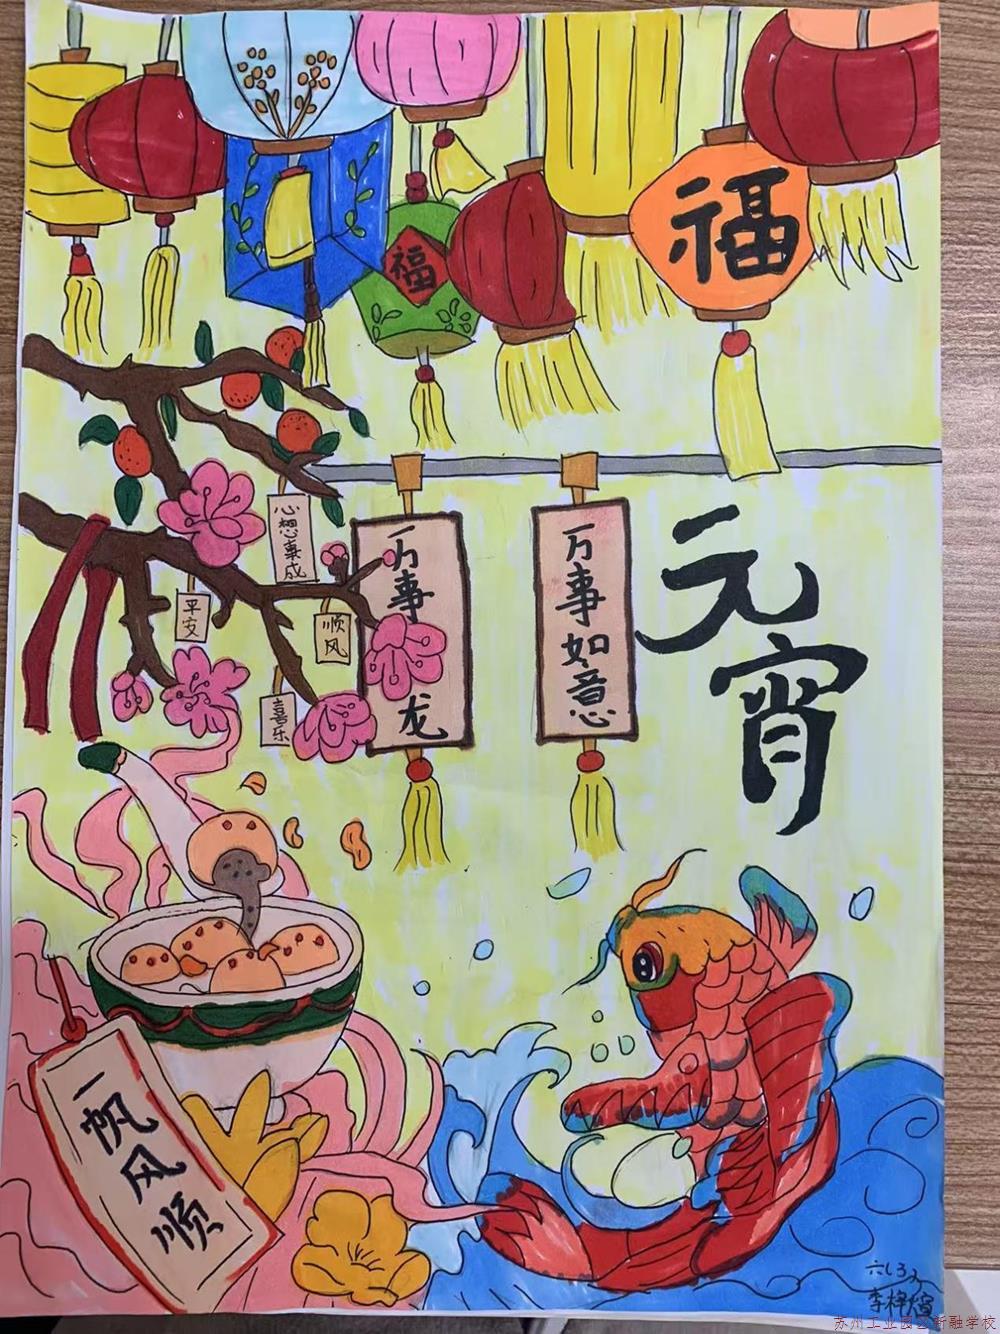 福
福
心想事成
平安
顺风
喜乐
万事
龙
万事如意
元宵
一帆风顺
六(3)
苏州工业园区新融学校